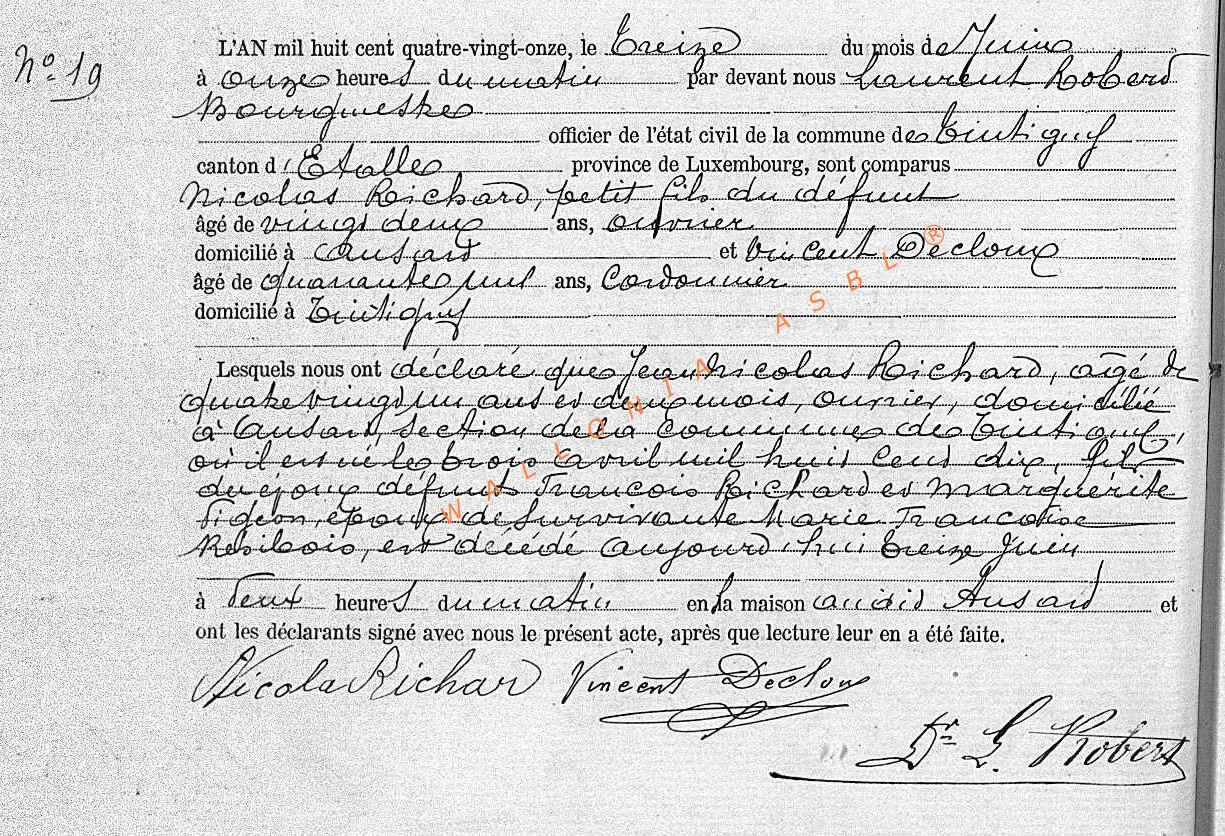 N° 19
L'AN mil huit cent quatre-vingt-onze, le treize du mois de Juin
à onze heures du matin par devant nous Laurent Robert
Bourgmestre
officier de l'état civil de la commune de Tintigny
canton d'Etalle province de Luxembourg, sont comparus
Nicolas Richard, petit fils du défunt
âgé de vingt deux ans, ouvrier
domicilié à Ansart et Vincent Decloux
âgé de quarante ans, Cordonnier
domicilié à Tintigny
Lesquels nous ont déclaré que Jean Nicolas Richard, âgé de
quatre vingt un ans et deux mois, ouvrier, domicilié
à Ansart, section de la commune de Tintigny,
où il est né le trois avril mil huit cent dix, fils
des époux défunts François Richard et Marguérite
Pigeon, époux de survivante Marie Françoise
est décédé aujourd'hui treize Juin
à deux heures du matin en la maison Ansart et
ont les déclarants signé avec nous le présent acte, après que lecture leur en a été faite.
Nicola Richar Vincent Decloux
Dr L. Robert
WALLONIA ASBL ®